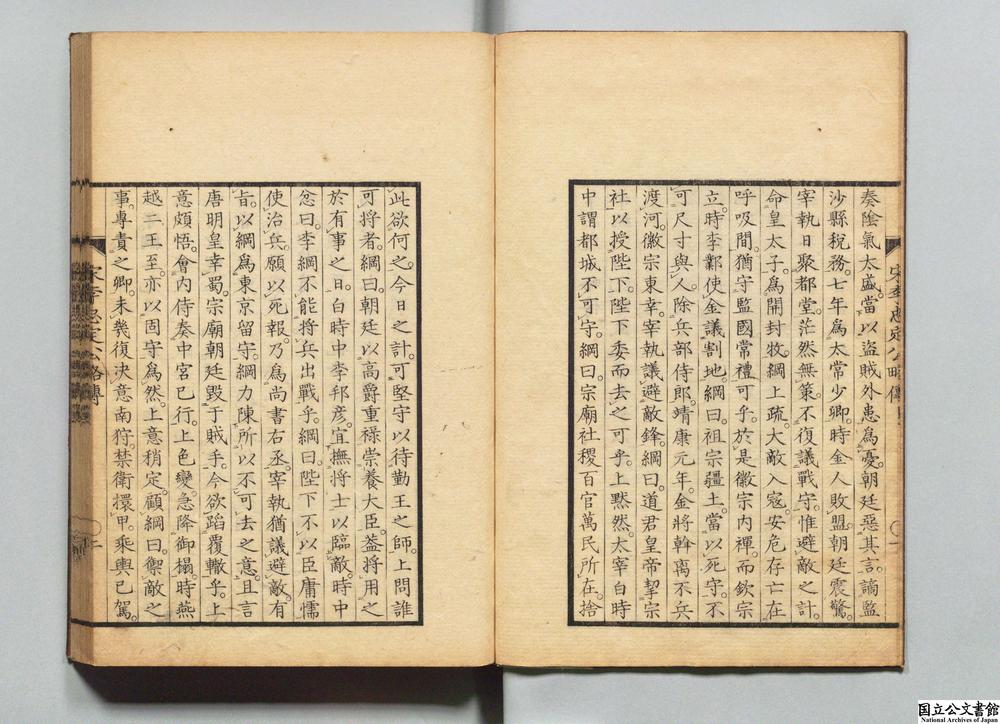 奏陰氣太盛。當以盜賊外患爲憂。朝廷惡其言。謫監
沙縣稅務。七年爲太常少卿。時金人敗盟。朝廷震驚。
宰執日聚都堂。茫然無策。不復議戰守。惟避敵之計。
命皇太子爲開封牧。綱上疏。大敵入寇。安危存亡在
呼吸間。猶守監國常禮可乎。於是徽宗內禪。而欽宗
立。時李鄴使金議割地。綱曰。祖宗疆土。當以死守。不
可尺寸與人。除兵部侍郎。靖康元年。金將斡离不兵
渡河。徽宗東幸。宰執議避敵鋒。綱曰。道君皇帝挈宗
社以授陛下。陛下委而去之可乎。上默然。太宰白時
中謂都城不可守。綱曰。宗廟社稷百官萬民所在。捨
此欲何之。今日之計。可堅守以待勤王之師。上問誰
可將者。綱曰。朝廷以高爵重祿崇養大臣。蓋將用之
於有事之日。白時中李邦彦。宜撫將士以臨敵。時中
忿曰。李綱不能將兵出戰乎。綱曰。陛下不以臣庸懦
使治兵。願以死報。乃爲尚書右丞。宰執猶議避敵。有
旨。以綱爲東京留守。綱力陳所以不可去之意。且言
唐明皇幸蜀。宗廟朝廷毀于賊手。今欲蹈覆轍乎。上
意頗悟。會內侍奏中宮已行。上色變。急降御榻。時燕
越二王至。亦以固守爲然。上意稍定。顧綱曰。禦敵之
事。專責之卿。未幾復決意南狩。禁衛擐甲。乘輿已駕。
宋李忠定公略傳
二
国立公文書館
National Archives of Japan